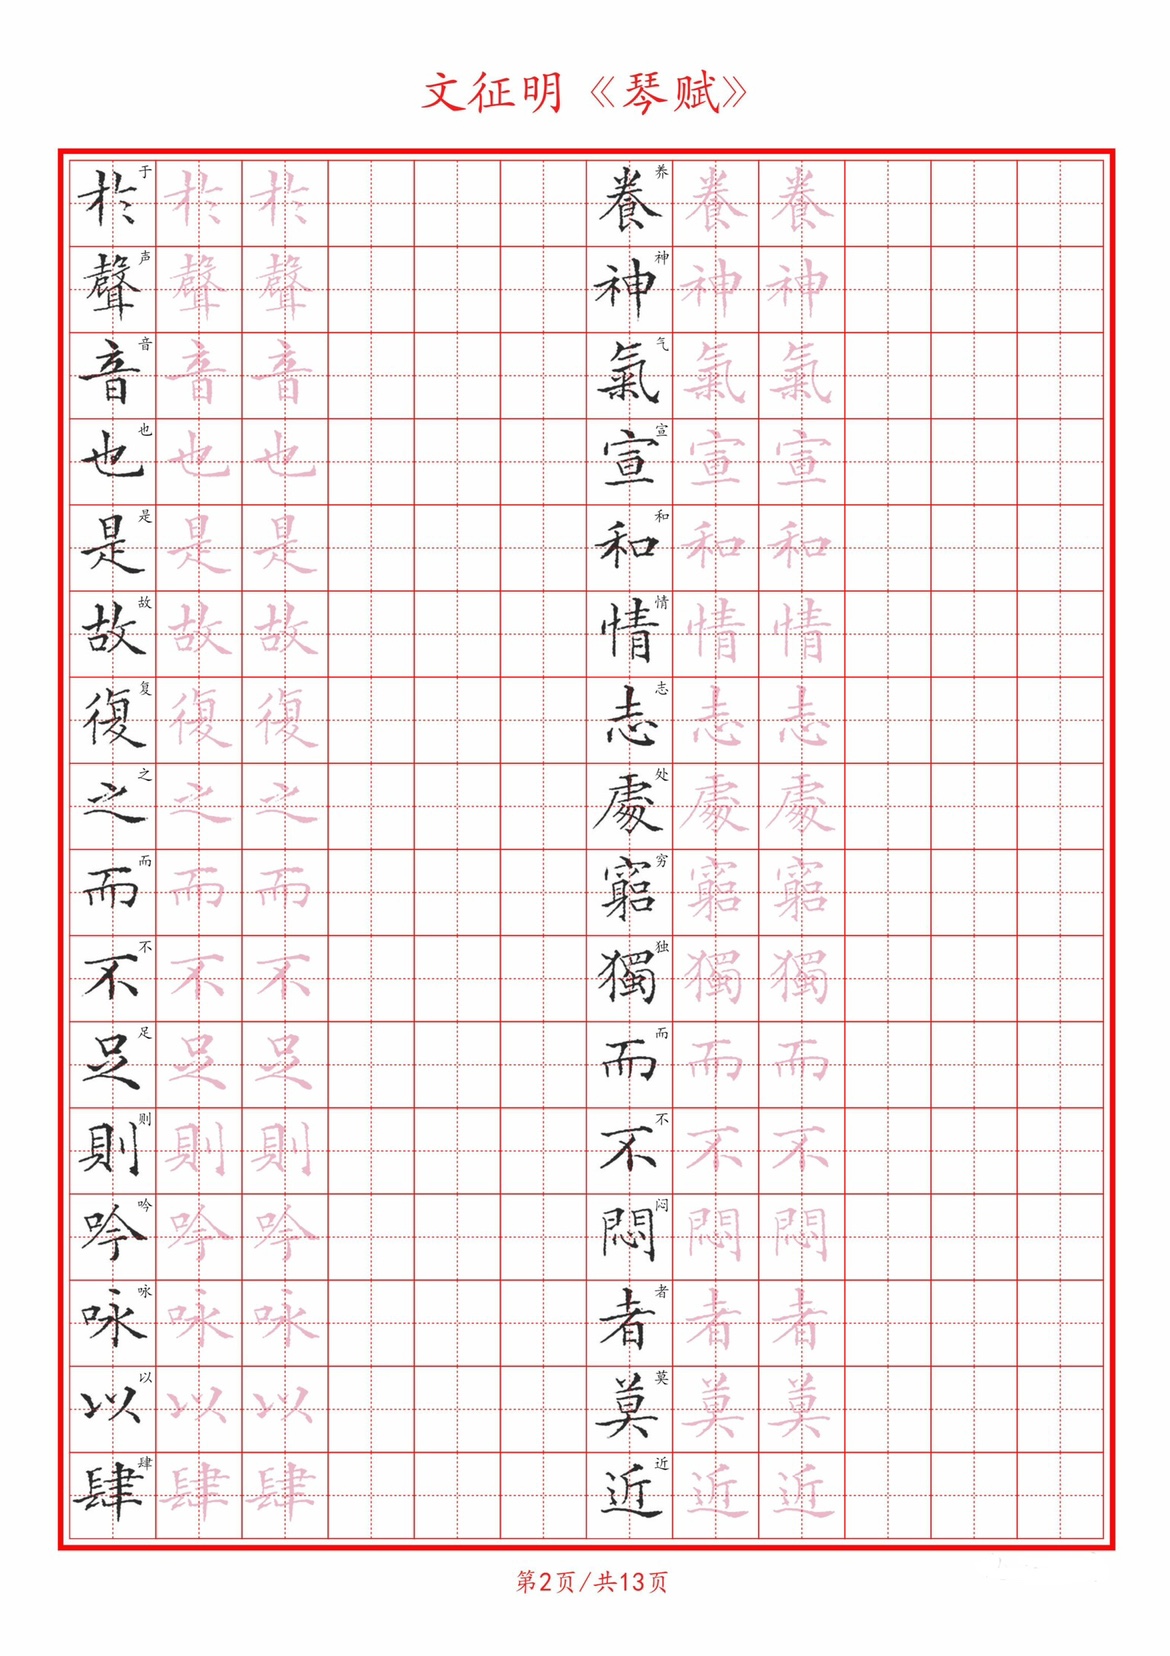 文征明《琴赋》
養神氣宣和情志處竆獨而不悶者莫近
养神气宣和情志处穷独而不闷者莫近
養神氣宣和情志處竆獨而不悶者莫近
養神氣宣和情志處竆獨而不悶者莫近
於聲音也是故復之而不足則吟咏以肆
于声音也是故复之而不足则吟咏以肆
於聲音也是故復之而不足則吟咏以肆
於聲音也是故復之而不足則吟咏以肆
第2页/共13页